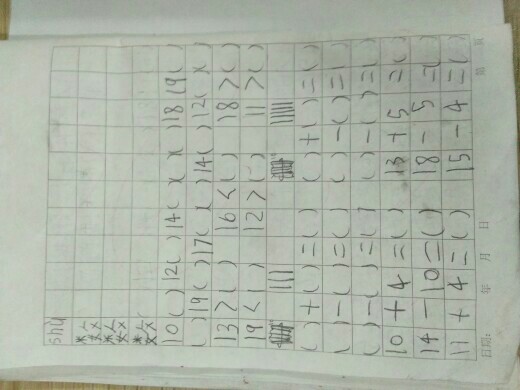 shu
10 ( ) 12 ( ) 14 ( )( )( ) 18 19 ( )
( ) 19 ( ) 17 ( )( ) 14 ( ) 12 ( )( )
13 > ( ) 16 < ( ) 18 > ( )
19 < ( ) 12 > ( ) 11 > ( )
( ) + ( ) = ( ) ( ) + ( ) = ( )
( ) - ( ) = ( ) ( ) - ( ) = ( )
( ) - ( ) = ( ) ( ) - ( ) = ( )
10 + 4 = ( ) 13 + 5 = ( )
14 - 10 = ( ) 18 - 5 = ( )
11 + 4 = ( ) 15 - 4 = ( )
日期: 年 月 日 第 页